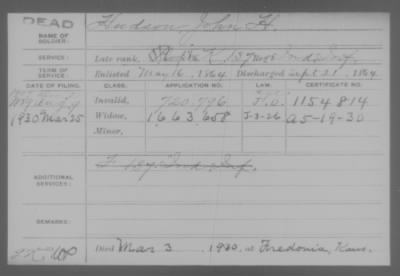 DEAD
NAME OF SOLDIER:
Hudson John H.
SERVICE:
Late rank, K, 137
TERM OF SERVICE:
Enlisted May 16, 1864 Discharged Sept. 21, 1864.
DATE OF FILING. CLASS. APPLICATION NO. LAW. CERTIFICATE NO.
Invalid, 720.796 1154814
1930 Mar 25 Widow, 1663658 5-3-26 A5-19-30
Minor,
ADDITIONAL SERVICES:
F 137 Ind. Inf.
REMARKS:
Died Mar 3 1930, at Fredonia, Kans.